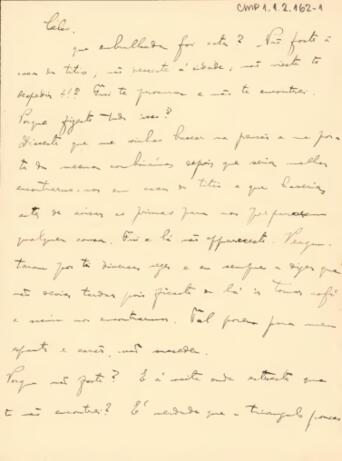 CMP 1.1.2.162-1
Celos.
que embrulhada foi esta? Não foste á
casa da titia, não vieste á cidade, não vieste te
despedir!!? Fui te procurar e não te encontrei.
Porque fizeste tudo isso?
Disseste que me vinhas buscar na pensão e na por-
ta da mesma combinámos depois que seria melhor
encontrarmo-nos em casa da titia e que haverias
antes de avisar as primas para nos prepararem
qualquer cousa. Fui e lá não appareceste. Pergun-
taram por ti diversas vezes e eu sempre a dizer que
não devias tardar pois ficaste de lá ir tomar café
e assim nos encontrarmos. Tal porém para meu
espanto e não succedeu.
Porque não foste? E á noite onde estiveste que
te não encontrei? É verdade que o triangulo